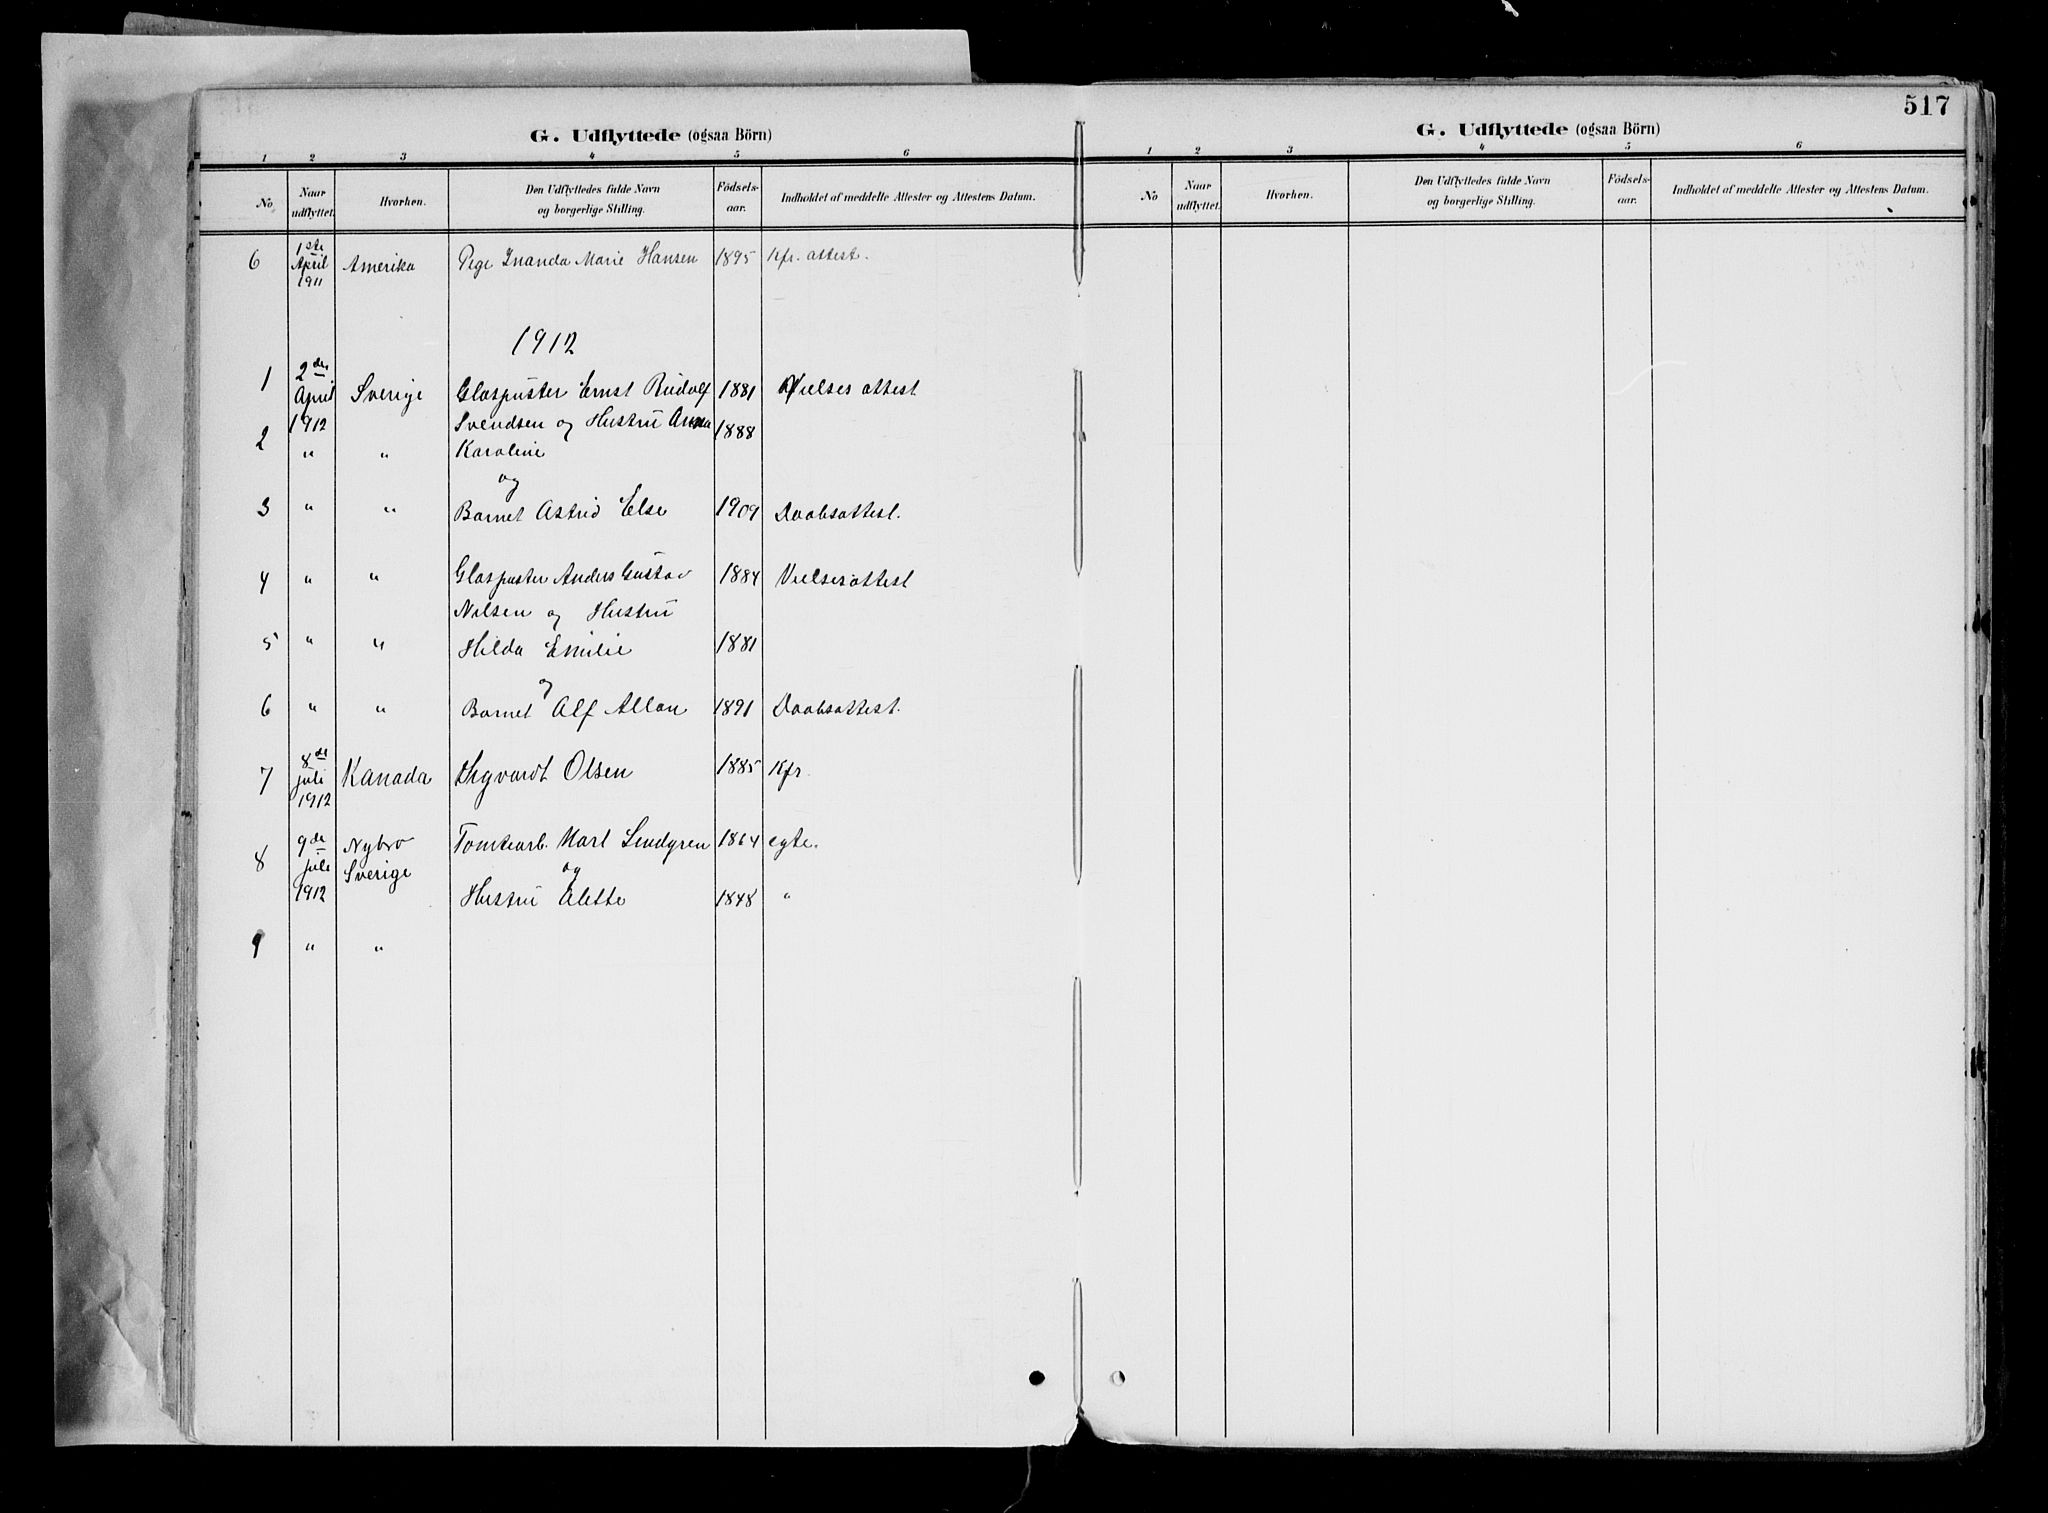 517
G. Udflyttede (ogsaa Börn)
1 2 3 4 5 6
No. Naar udflyttet. Hvorhen. Den Udflyttedes fulde Navn og borgerlige Stilling. Födsels-aar. Indholdet af meddelte Attester og Attestens Datum.
6 1ste April 1911 Amerika Pige Inanda Marie Hansen 1895 Kfr. attest.
1912
1 2den April 1912 Sverige Glaspuster Ernst Rudolf 1881 Vielses attest
2 Svendsen og Hustru Anna 1888
" " Karoline
og
3 " " Barnet Astrid Else 1909 Daabsattest.
4 " " Glaspuster Anders Gustav 1884 Vielsesattest
Nilsen og Hustru
5 " " Hilda Emilie 1881
og
6 " " Barnet Alf Allan 1891 Daabsattest.
7 8de juli 1912 Kanada Sigvardt Olsen 1885 Kfr.
8 9de juli 1912 Nybro Sverige Tomtearb. Karl Lindgren 1864 egte.
og
Hustru Alette 1848 "
9 " "
G. Udflyttede (ogsaa Börn)
1 2 3 4 5 6
No Naar udflyttet. Hvorhen. Den Udflyttedes fulde Navn og borgerlige Stilling. Födsels-aar. Indholdet af meddelte Attester og Attestens Datum.